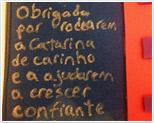 Obrigada
por rodearem
a Catarina
de carinho
e a ajudarem
a crescer
confiante